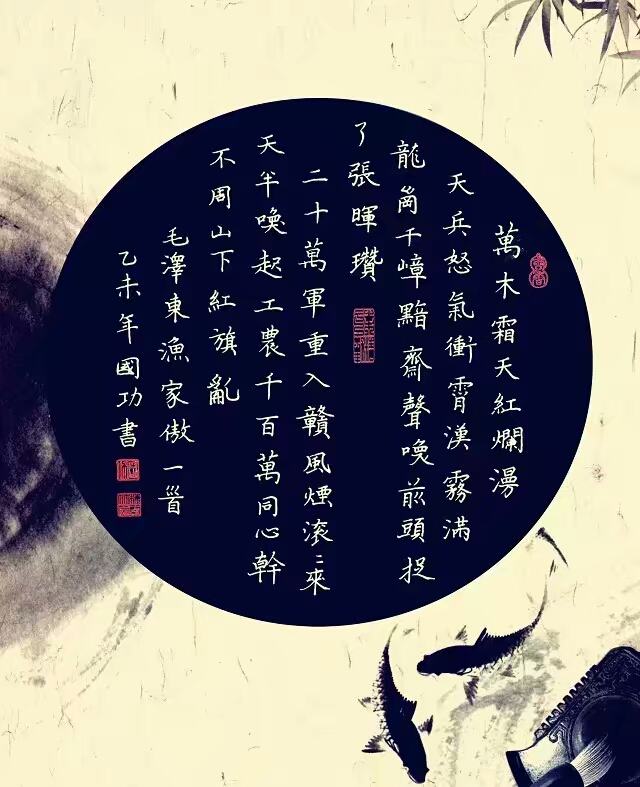 萬木霜天紅爛漫
天兵怒氣衝霄漢霧滿
龍崗千嶂黯齋聲喚前頭捉
了張暉瓚
二十萬軍重入贛風煙滾々來
天半喚起工農千百萬同心幹
不周山下紅旗亂
毛澤東漁家傲一首
乙未年國功書